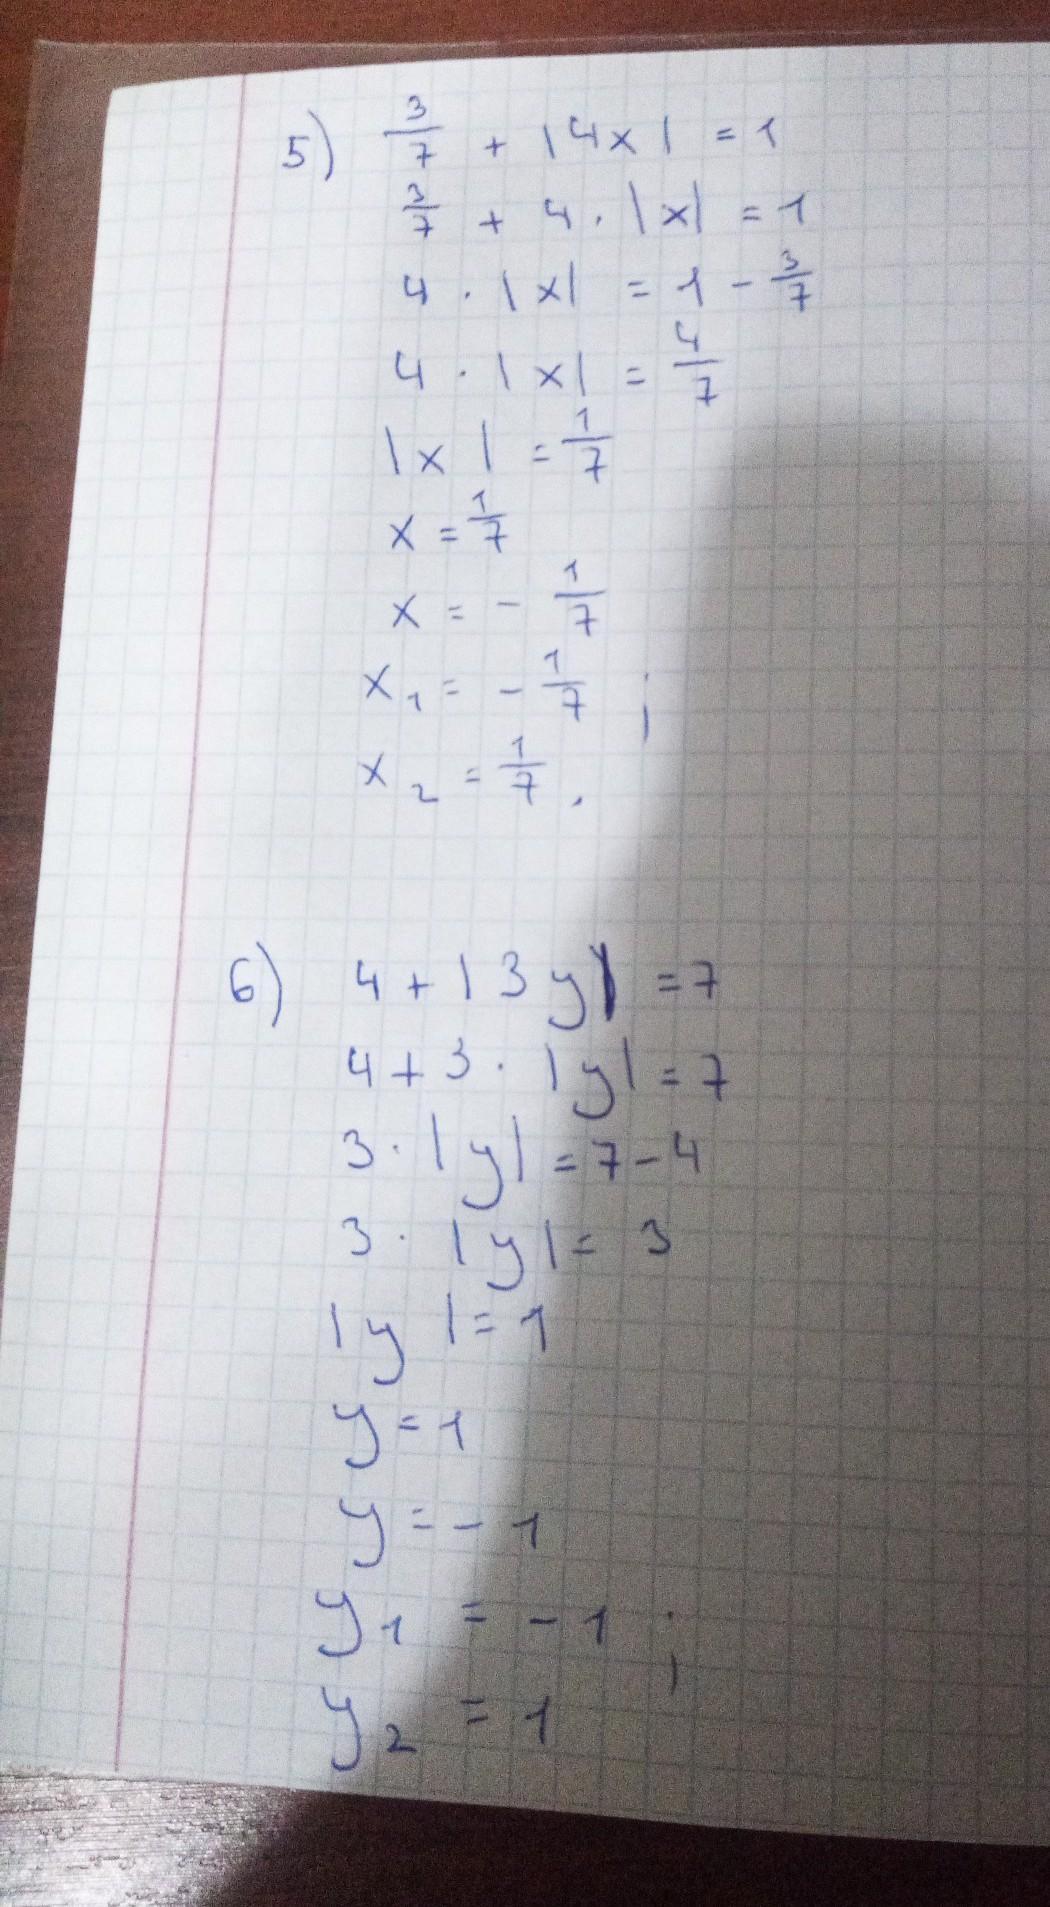 5) 3/7 + |4x| = 1
3/7 + 4 · |x| = 1
4 · |x| = 1 - 3/7
4 · |x| = 4/7
|x| = 1/7
x = 1/7
x = - 1/7
x₁ = - 1/7 ;
x₂ = 1/7 .
6) 4 + |3y| = 7
4 + 3 · |y| = 7
3 · |y| = 7 - 4
3 · |y| = 3
|y| = 1
y = 1
y = - 1
y₁ = - 1 ;
y₂ = 1